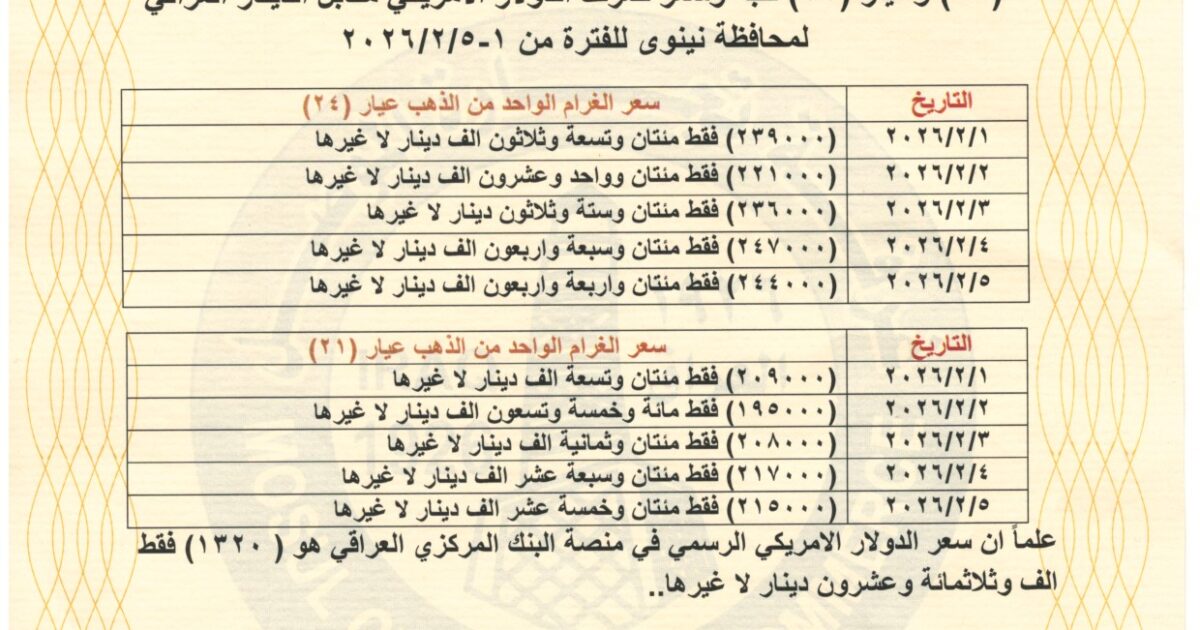 لمحافظة نينوى للفترة من ١-٢٠٢٦/٢/٥
التاريخ سعر الغرام الواحد من الذهب عيار (٢٤)
٢٠٢٦/٢/١ (٢٣٩٠٠٠) فقط مئتان وتسعة وثلاثون الف دينار لا غيرها
٢٠٢٦/٢/٢ (٢٢١٠٠٠) فقط مئتان وواحد وعشرون الف دينار لا غيرها
٢٠٢٦/٢/٣ (٢٣٦٠٠٠) فقط مئتان وستة وثلاثون دينار لا غيرها
٢٠٢٦/٢/٤ (٢٤٧٠٠٠) فقط مئتان وسبعة واربعون الف دينار لا غيرها
٢٠٢٦/٢/٥ (٢٤٤٠٠٠) فقط مئتان واربعة واربعون الف دينار لا غيرها
التاريخ سعر الغرام الواحد من الذهب عيار (٢١)
٢٠٢٦/٢/١ (٢٠٩٠٠٠) فقط مئتان وتسعة الف دينار لا غيرها
٢٠٢٦/٢/٢ (١٩٥٠٠٠) فقط مائة وخمسة وتسعون الف دينار لا غيرها
٢٠٢٦/٢/٣ (٢٠٨٠٠٠) فقط مئتان وثمانية الف دينار لا غيرها
٢٠٢٦/٢/٤ (٢١٧٠٠٠) فقط مئتان وسبعة عشر الف دينار لا غيرها
٢٠٢٦/٢/٥ (٢١٥٠٠٠) فقط مئتان وخمسة عشر الف دينار لا غيرها
علماً ان سعر الدولار الامريكي الرسمي في منصة البنك المركزي العراقي هو ( ١٣٢٠) فقط
الف وثلاثمائة وعشرون دينار لا غيرها..